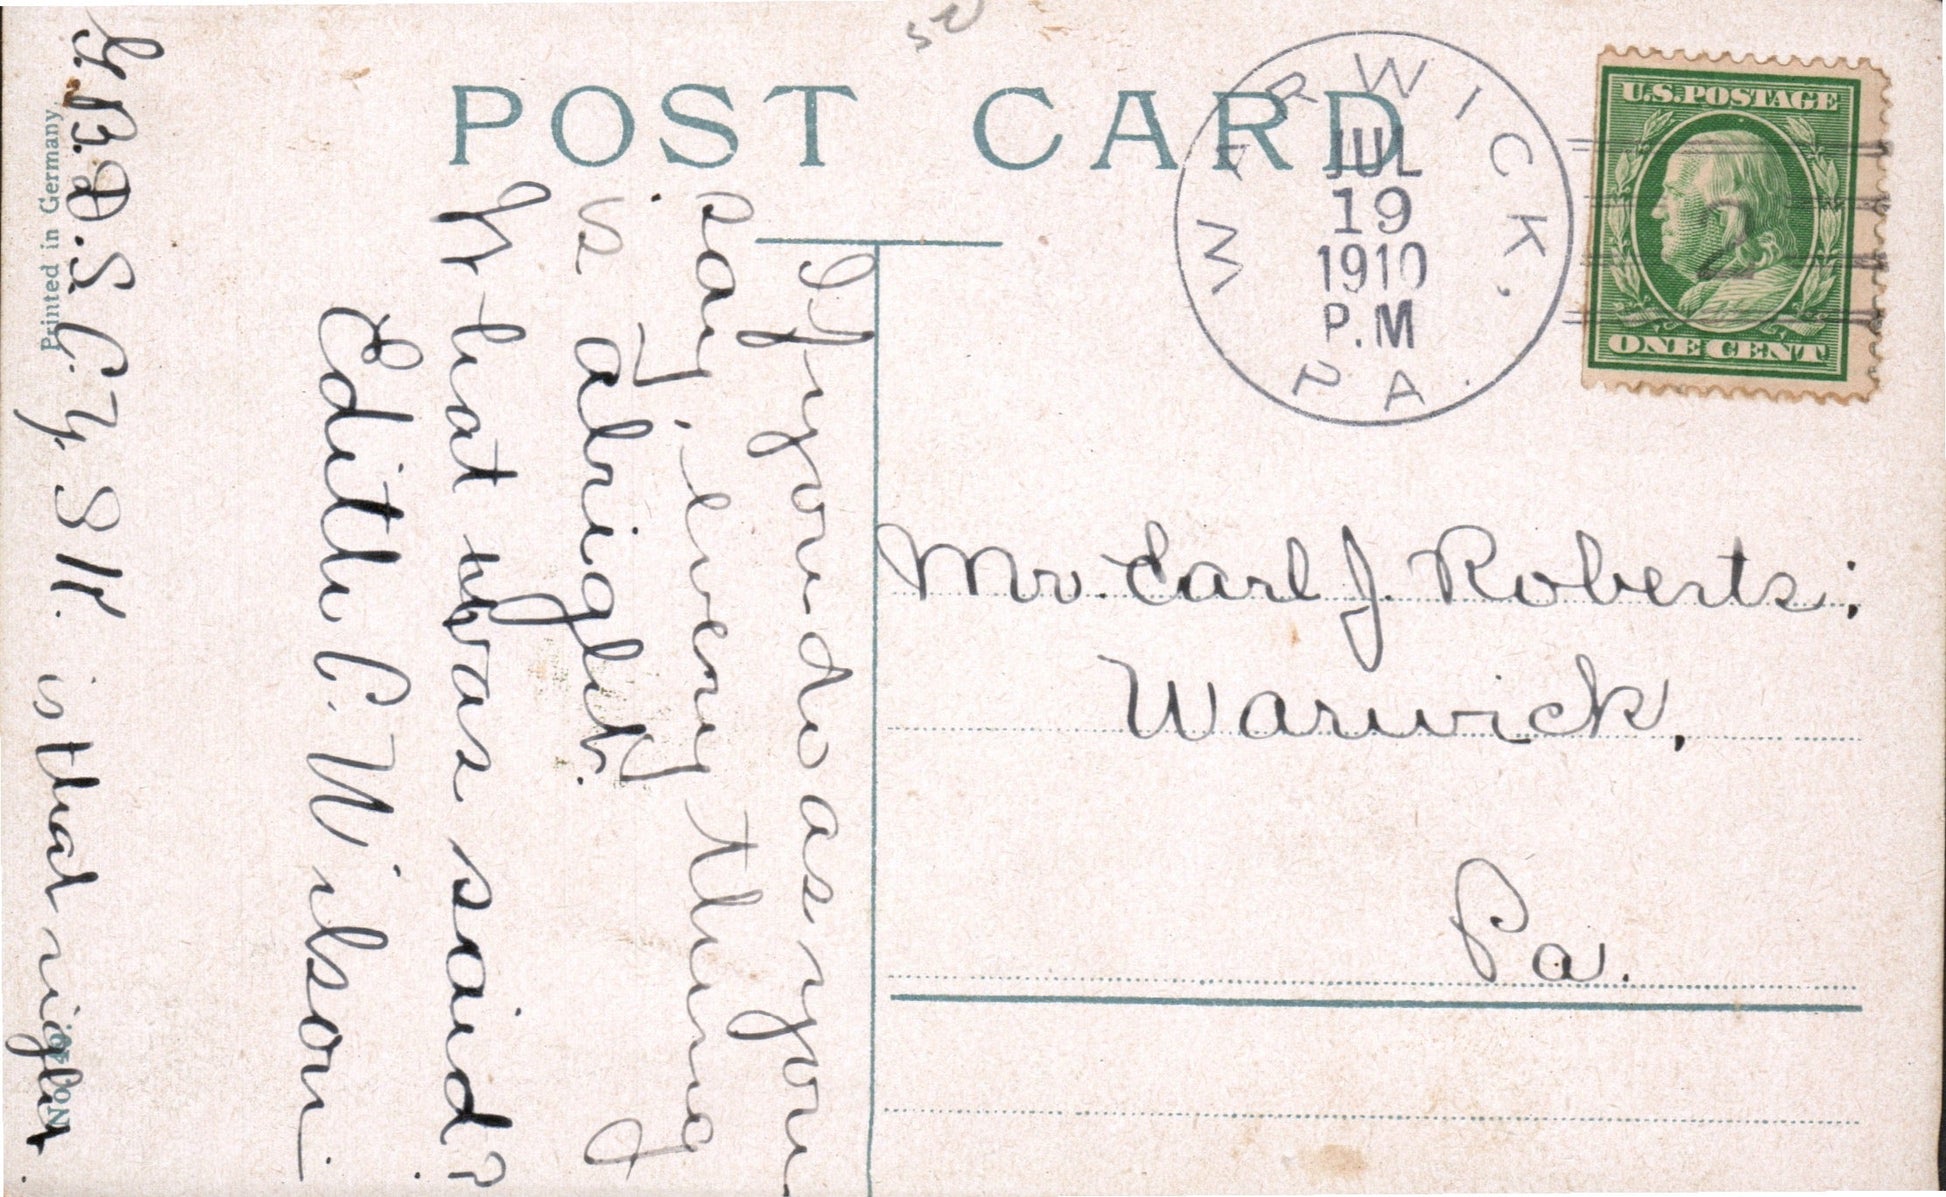 POST CARD
WARWICK,
JUL
19
1910
P.M
PA.
U.S.POSTAGE
2
ONE CENT
Mr. Earl J. Roberts;
Warwick,
Pa.
If you do as you
say, every thing
is alright.
What was said?
Edith C. Wilson.
is that right
Printed in Germany.
No.